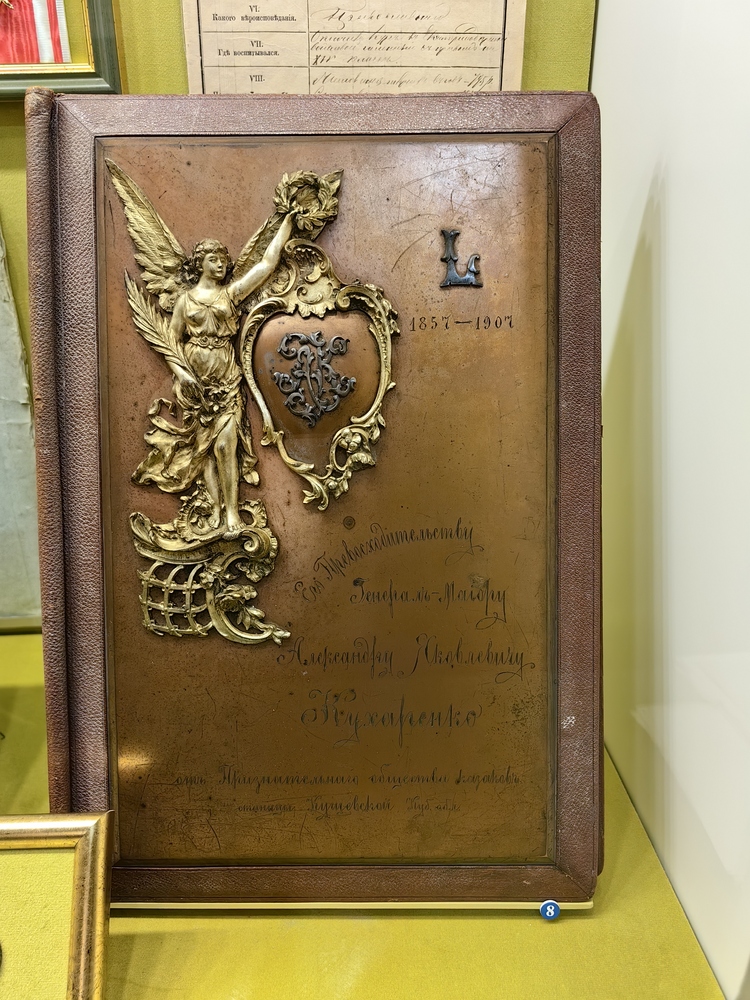 VI.
Какого вѣроисповѣданія.
VII.
Гдѣ воспитывался.
VIII.
L
1857—1907
Его Превосходительству
Генералъ-Маіору
Александру Яковлевичу
Кухаренко
отъ Признательнаго общества казаковъ
станицы Кущовской Куб. обл.
8